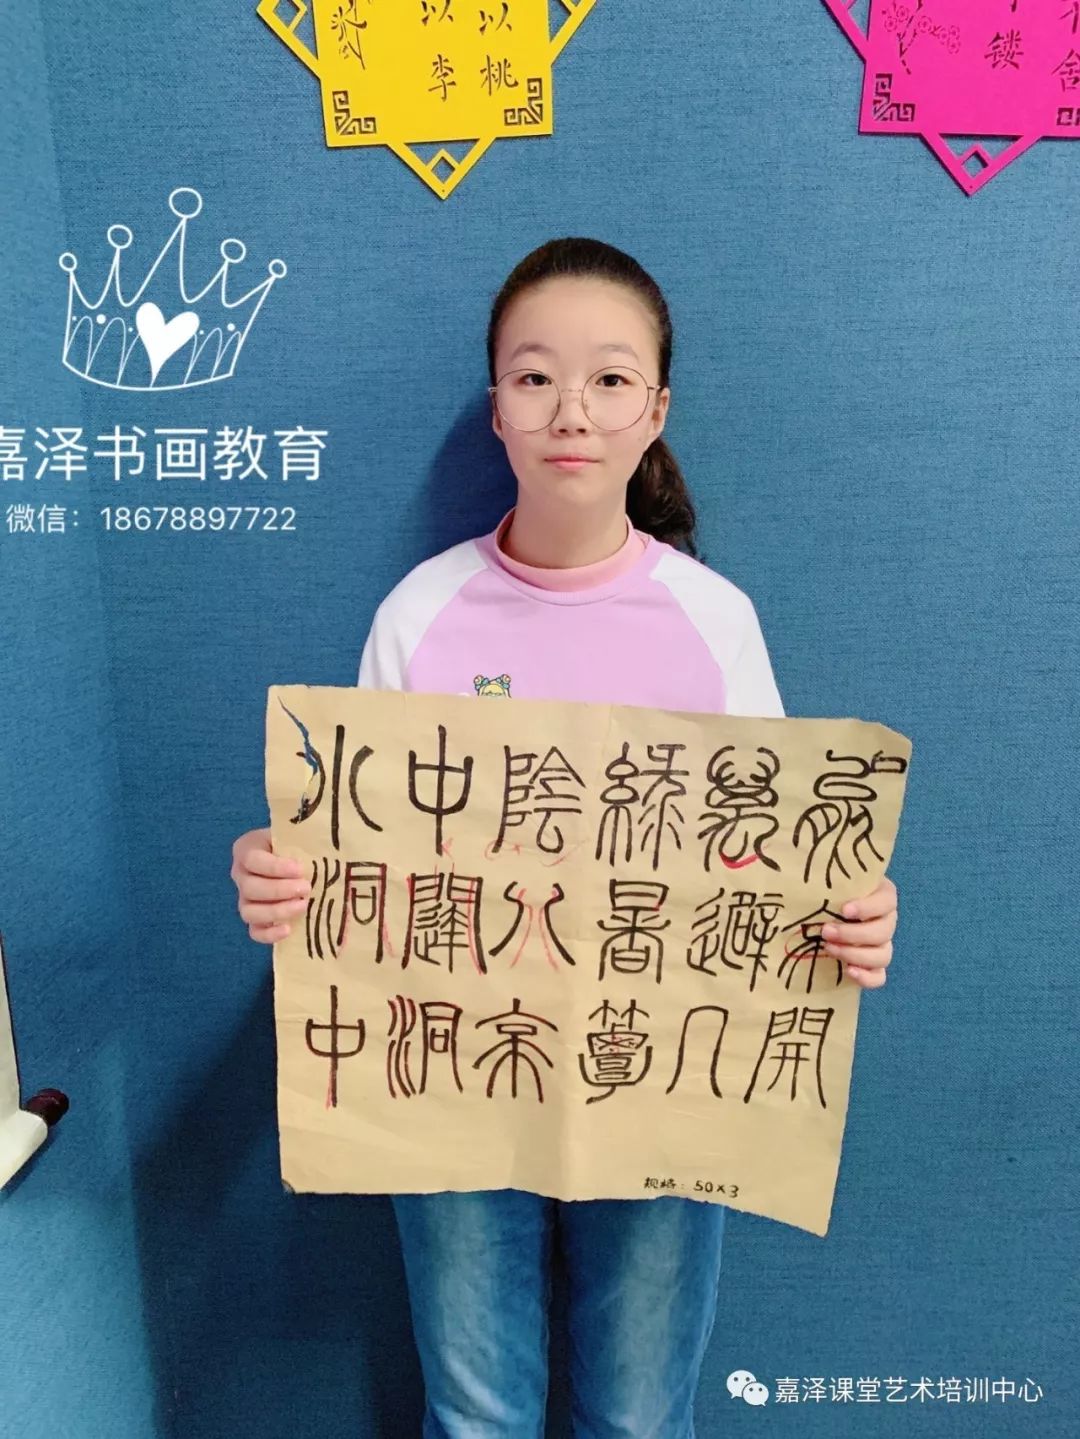 以桃
以李
舍
镂
嘉泽书画教育
微信：18678897722
余開
萬避几
綠暑簟
陰八余
中洞
水洞中
规格：50×3
嘉泽课堂艺术培训中心